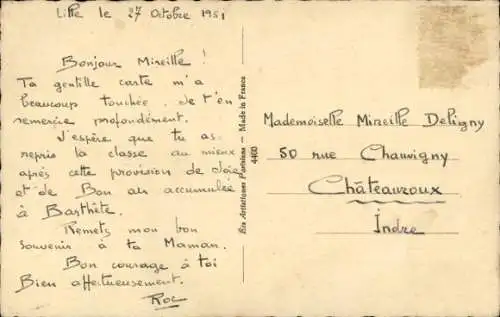 Lille le 27 Octobre 1951
Bonjour Mireille !
Ta gentille carte m'a
beaucoup touchée. Je t'en
remercie profondément.
J'espère que tu as
repris la classe au mieux
après cette provision de joie
et de Bon air accumulée
à Barthète.
Remets mon bon
souvenir à ta Maman.
Bon courage à toi
Bien affectueusement.
Roc
4400 Made in France
Mademoiselle Mireille Deligny
50 rue Chauvigny
Châteauroux
Indre